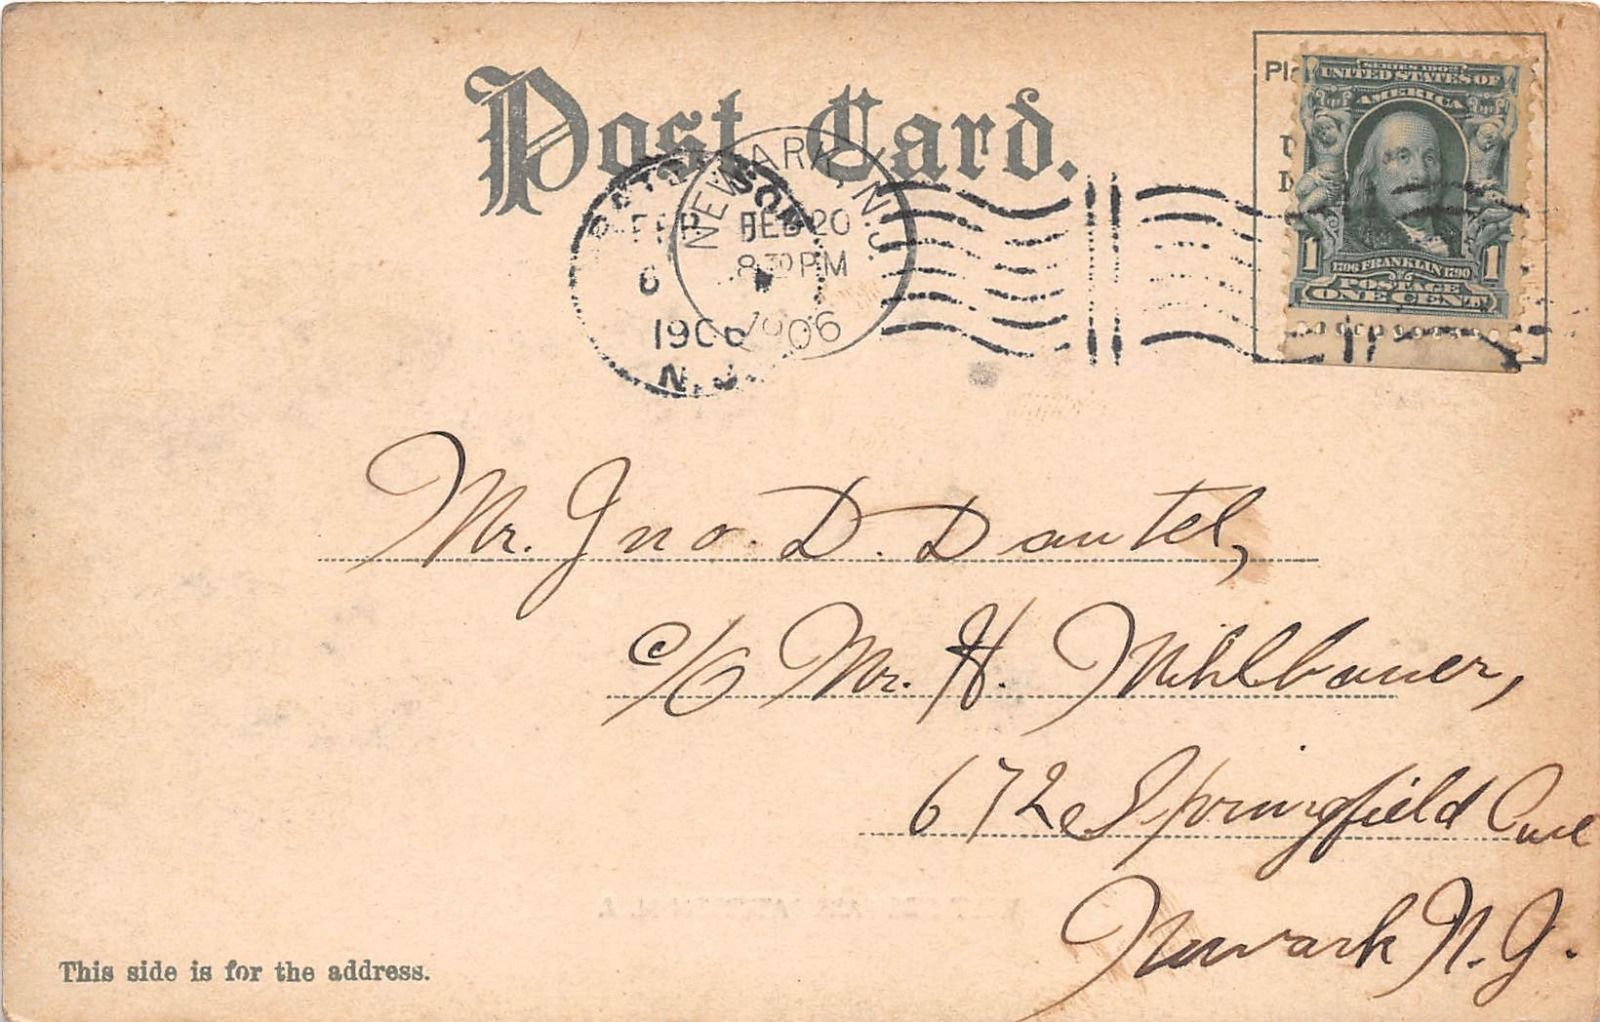 Post Card.
Pla
SERIES 1902
UNITED STATES OF
AMERICA
1 1
1706 FRANKLIN 1790
POSTAGE
ONE CENT
NEWARK, N.J.
FEB 20
8 30 PM
1906
FEB
6
1906
N.J.
Mr. Jno. D. Dautel,
c/o Mr. H. Mihlbauer,
672 Springfield Ave
Newark N.J.
This side is for the address.